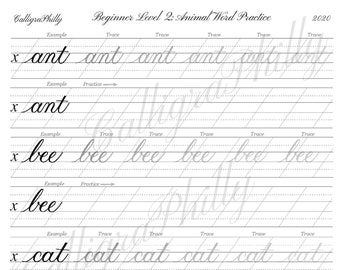 CalligraPhilly Beginner Level 2: Animal Word Practice 2020
Example Trace Trace Trace Trace Trace
x ant ant ant ant ant ant
Example Practice
x ant
Example Trace Trace Trace Trace Trace
x bee bee bee bee bee bee
Example Practice
x bee
Example Trace Trace Trace Trace Trace
x cat cat cat cat cat cat
CalligraPhilly
CalligraPhilly
CalligraPhilly